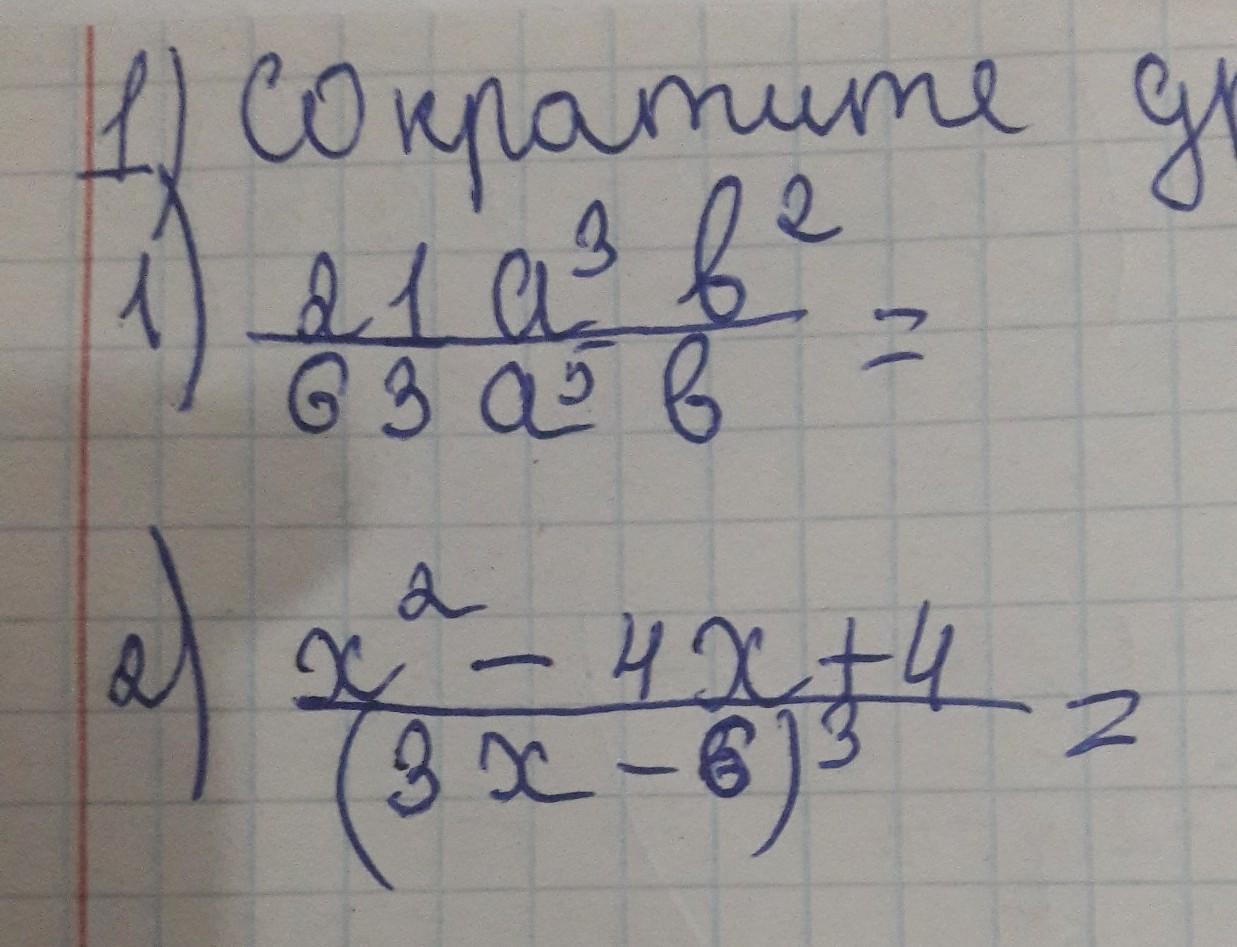 1) Сократите др
1) 21 a³ b² / 63 a⁵ b =
2) x² - 4x + 4 / (3x - 6)³ =